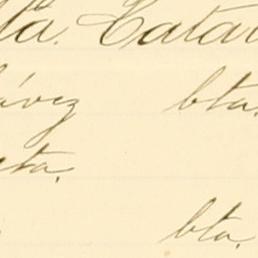 ta. Catar
ávez bta.
sta.
bta.